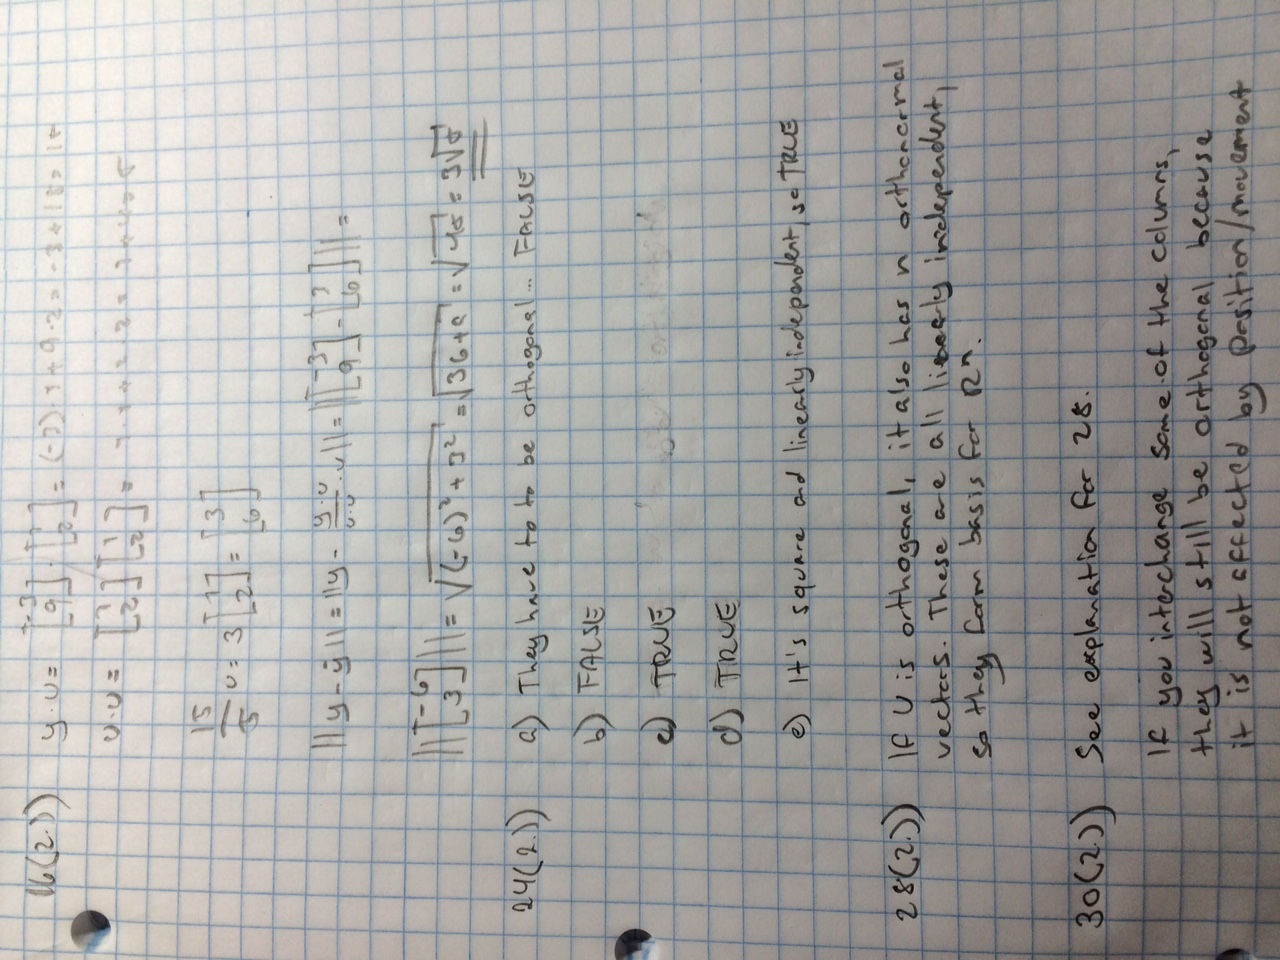 16(2.)) y · u = [-3 9] · [1 2] = (-3) · 1 + 9 · 2 = -3 + 18 = 15
u · u = [1 2] [1 2] = 1 · 1 + 2 · 2 = 1 + 4 = 5
15/5 u = 3 [1 2] = [3 6]
||y - ŷ|| = ||y - y·u/u·u · u|| = ||[-3 9] - [3 6]|| =
||[-6 3]|| = √(-6)² + 3² = √36+9 = √45 = 3√5
24(2.)) a) They have to to be orthogonal... FALSE
b) FALSE
c) TRUE
d) TRUE
e) It's square and linearly independent, so TRUE
28(2.)) If U is orthogonal, it also has n orthonormal
vectors. These are all linearly independent,
so they form basis for Rn.
30(2.)) See explanation for 28.
If you interchange some of the columns,
they will still be orthogonal because
it is not affected by position/movement